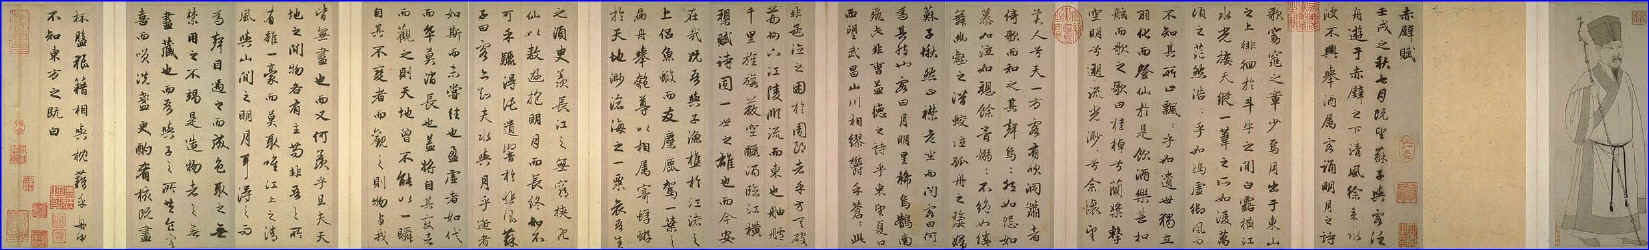 赤壁賦
壬戌之秋七月既望蘇子與客泛
舟遊于赤壁之下清風徐來水
波不興舉酒属客誦明月之詩
歌窈窕之章少焉月出于東山
之上徘徊於斗牛之間白露横江
水光接天縱一葦之所如凌萬
頃之茫然浩浩乎如馮虚御風而
不知其所止飄飄乎如遺世獨立
羽化而登仙於是飲酒樂甚扣
舷而歌之歌曰桂棹兮蘭槳擊
空明兮泝流光渺渺兮余懷望
美人兮天一方客有吹洞簫者
倚歌而和之其聲嗚嗚然如怨如
慕如泣如訴餘音嫋嫋不絶如縷
舞幽壑之潜蛟泣孤舟之嫠婦
蘇子愀然正襟危坐而問客曰何
為其然也客曰月明星稀烏鵲南
飛此非曹孟德之詩乎東望夏口
西朢武昌山川相繆鬱乎蒼蒼此
非孟德之困於周郎者乎方其破
荆州下江陵順流而東也舳艫
千里旌旗蔽空釃酒臨江横
槊賦詩固一世之雄也而今安
在哉况吾與子漁樵於江渚之
上侣魚鰕而友麋鹿駕一葉之
扁舟舉匏尊以相属寄蜉蝣
於天地渺滄海之一粟哀吾生
之須臾羨長江之無窮挟飛
仙以遨遊抱明月而長終知不
可乎驟得託遺響於悲風蘇
子曰客亦知夫水與月乎逝者
如斯而未嘗往也盈虚者如代
而卒莫消長也盖將自其變者
而觀之則天地曾不能以一瞬
自其不變者而觀之則物與我
皆無盡也而又何羨乎且夫天
地之間物各有主苟非吾之所
有雖一豪而莫取唯江上之清
風與山間之明月耳得之而
為聲目遇之而成色取之無
禁用之不竭是造物者之無
盡藏也而吾與子之所共食客
喜而笑洗盞更酌肴核既盡
杯盤狼藉相與枕藉乎舟中
不知東方之既白